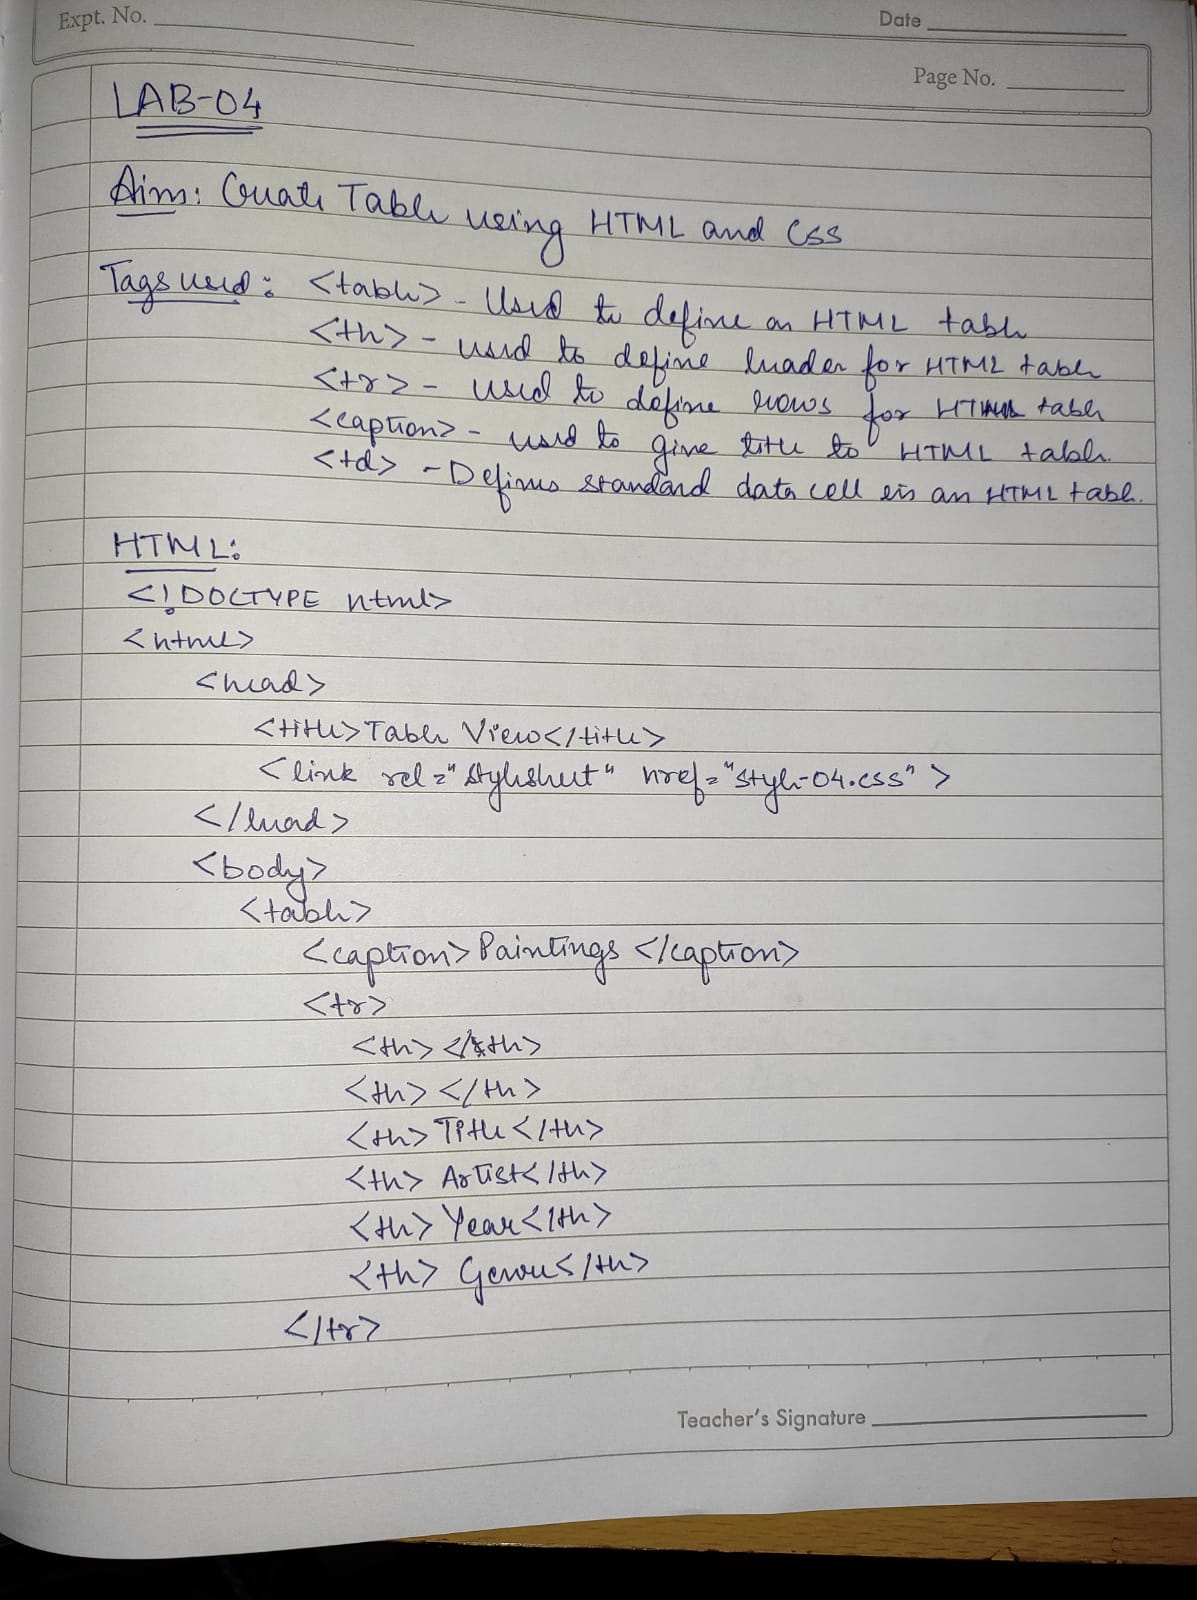 Expt. No.
Date
Page No.
LAB-04
Aim: Create Table using HTML and CSS
Tags used: <table> - Used to define an HTML table
<th> - used to define header for HTML table
<tr> - used to define rows for HTML table
<caption> - used to give title to HTML table.
<td> - Defines standard data cell in an HTML table.
HTML:
<!DOCTYPE html>
<html>
<head>
<title>Table View</title>
<link rel="stylesheet" href="style-04.css">
</head>
<body>
<table>
<caption>Paintings</caption>
<tr>
<th></th>
<th></th>
<th>Title</th>
<th>Artist</th>
<th>Year</th>
<th>Genre</th>
</tr>
Teacher's Signature